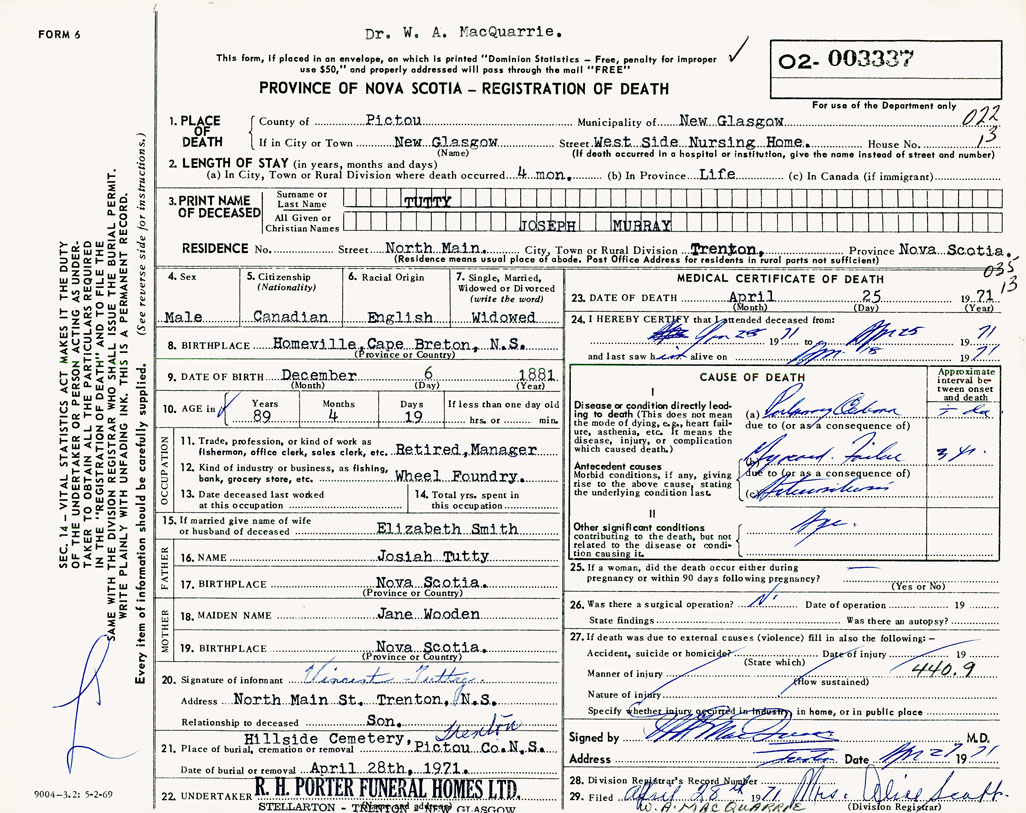 FORM 6
Dr. W. A. MacQuarrie.
This form, if placed in an envelope, on which is printed "Dominion Statistics – Free, penalty for improper
use $50," and properly addressed will pass through the mail "FREE"
PROVINCE OF NOVA SCOTIA – REGISTRATION OF DEATH
02- 003337
For use of the Department only
022
13
1. PLACE OF DEATH
County of Pictou Municipality of New Glasgow
If in City or Town New Glasgow Street West Side Nursing Home. House No.
(Name) (If death occurred in a hospital or institution, give the name instead of street and number)
2. LENGTH OF STAY (in years, months and days)
(a) In City, Town or Rural Division where death occurred 4 mon. (b) In Province Life (c) In Canada (if immigrant)
3. PRINT NAME OF DECEASED
Surname or Last Name TUTTY
All Given or Christian Names JOSEPH MURRAY
RESIDENCE No. Street North Main. City, Town or Rural Division Trenton, Province Nova Scotia.
(Residence means usual place of abode. Post Office Address for residents in rural parts not sufficient)
035
13
4. Sex
Male
5. Citizenship
(Nationality)
Canadian
6. Racial Origin
English
7. Single, Married,
Widowed or Divorced
(write the word)
Widowed
8. BIRTHPLACE Homeville, Cape Breton, N.S.
(Province or Country)
9. DATE OF BIRTH December 6 1881
(Month) (Day) (Year)
10. AGE in Years Months Days If less than one day old
89 4 19 hrs. or min.
OCCUPATION
11. Trade, profession, or kind of work as
fisherman, office clerk, sales clerk, etc. Retired, Manager
12. Kind of industry or business, as fishing,
bank, grocery store, etc. Wheel Foundry.
13. Date deceased last worked
at this occupation
14. Total yrs. spent in
this occupation
15. If married give name of wife
or husband of deceased Elizabeth Smith
FATHER
16. NAME Josiah Tutty
17. BIRTHPLACE Nova Scotia.
(Province or Country)
MOTHER
18. MAIDEN NAME Jane Wooden
19. BIRTHPLACE Nova Scotia.
(Province or Country)
20. Signature of informant Vincent Tutty.
Address North Main St. Trenton, N.S.
Relationship to deceased Son.
Hillside Cemetery, Trenton
21. Place of burial, cremation or removal Pictou Co. N.S.
Date of burial or removal April 28th, 1971.
22. UNDERTAKER R. H. PORTER FUNERAL HOMES LTD.
STELLARTON - TRENTON - NEW GLASGOW
MEDICAL CERTIFICATE OF DEATH
23. DATE OF DEATH April 25 1971
(Month) (Day) (Year)
24. I HEREBY CERTIFY that I attended deceased from:
1971 to Apr 25 1971
and last saw him alive on 1971
CAUSE OF DEATH
Approximate
interval be-
tween onset
and death
I
Disease or condition directly lead-
ing to death (This does not mean
the mode of dying, e.g., heart fail-
ure, asthenia, etc. It means the
disease, injury, or complication
which caused death.)
(a)
due to (or as a consequence of)
(b) Failure 3 yr.
Antecedent causes
Morbid conditions, if any, giving
rise to the above cause, stating
the underlying condition last.
due to (or as a consequence of)
(c)
II
Other significant conditions
contributing to the death, but not
related to the disease or condi-
tion causing it.
Age.
25. If a woman, did the death occur either during
pregnancy or within 90 days following pregnancy?
(Yes or No)
26. Was there a surgical operation? No. Date of operation 19
State findings Was there an autopsy?
27. If death was due to external causes (violence) fill in also the following: –
Accident, suicide or homicide? Date of injury 19
(State which)
Manner of injury 440.9
(How sustained)
Nature of injury
Specify whether injury occurred in industry, in home, or in public place
Signed by M.D.
Address Date Apr 27 1971
28. Division Registrar's Record Number
29. Filed April 28th 1971 Mrs. Alice Scott.
W. A. MACQUARRIE (Division Registrar)
SEC. 14 – VITAL STATISTICS ACT MAKES IT THE DUTY
OF THE UNDERTAKER OR PERSON ACTING AS UNDER-
TAKER TO OBTAIN ALL THE PARTICULARS REQUIRED
IN THE "REGISTRATION OF DEATH" AND TO FILE THE
SAME WITH THE DIVISION REGISTRAR WHO SHALL ISSUE THE BURIAL PERMIT.
WRITE PLAINLY WITH UNFADING INK. THIS IS A PERMANENT RECORD.
Every item of information should be carefully supplied. (See reverse side for instructions.)
9004-3.2: 5-2-69